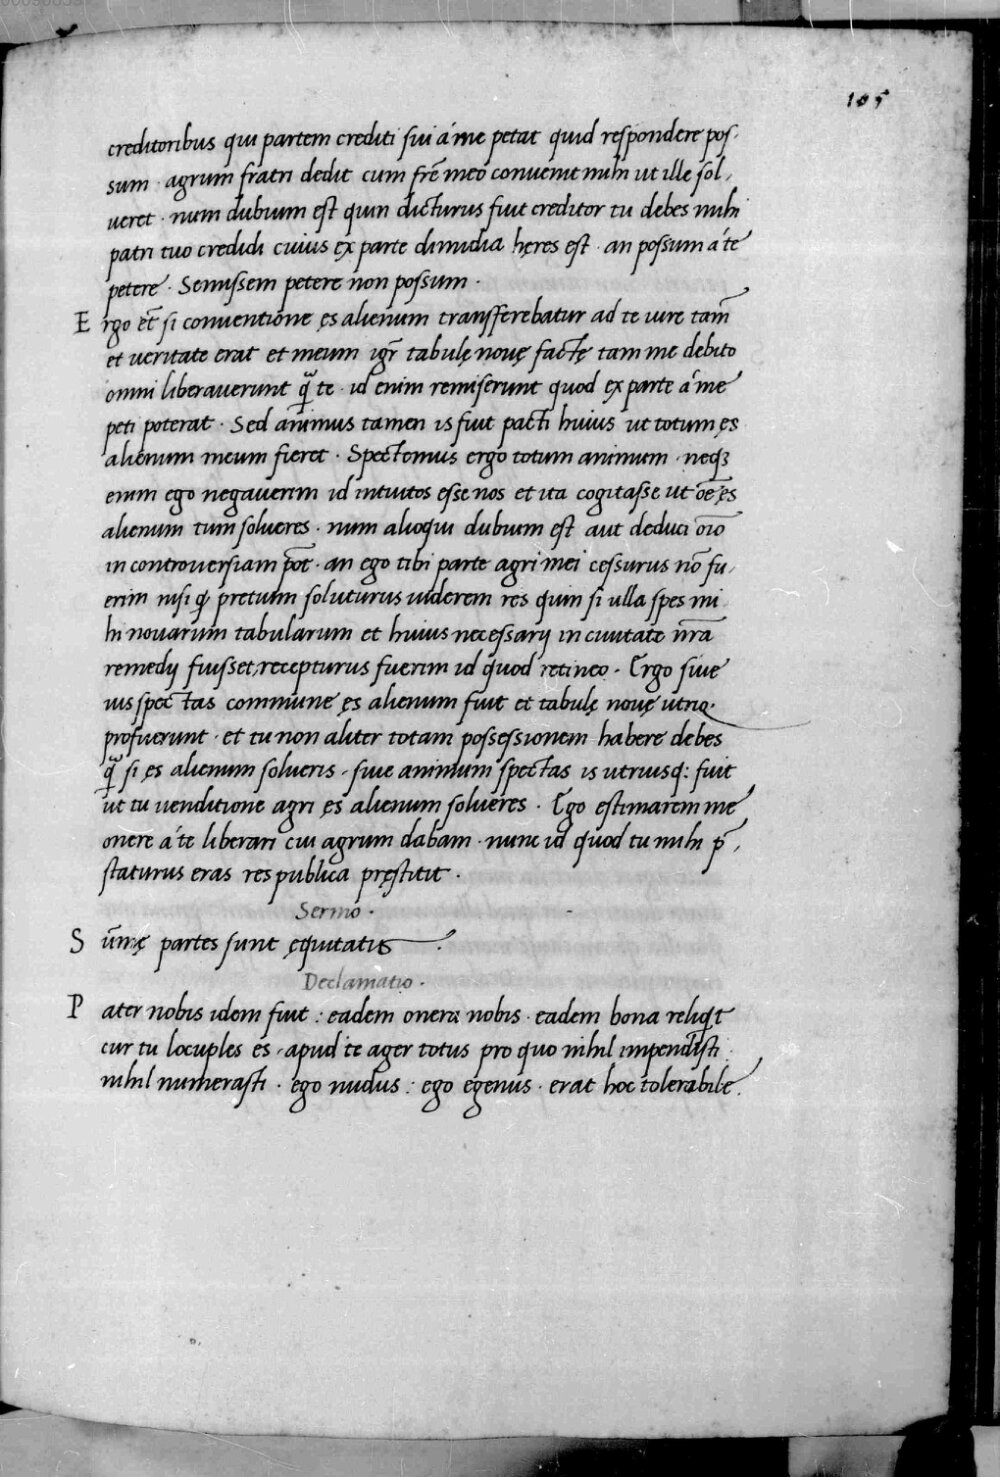 105
creditoribus qui partem crediti sui á me petat quid respondere pos,
sum · agrum fratri dedit cum fr̄e meo convenit mihi ut ille sol,
veret · num dubium est quin dicturus fuit creditor tu debes mihi
patri tuo credidi cuius ex parte dimidia hęres est · an possum á te
petere · Semissem petere non possum ·
Ergo et̄ si conventione ęs alienum transferebatur ad te iure tam̄
et veritate erat et meum igr̄ tabulę novę factę tam me debito
omni liberaverunt q̄ te · id enim remiserunt quod ex parte á me
peti poterat · Sed animus tamen is fuit pacti huius ut totum ęs
alienum meum fieret · Spectemus ergo totum animum · neqꝫ
enim ego negaverim id intuitos esse nos et ita cogitasse ut oē ęs
alienum tum solveres · num alioqui dubium est aut deduci oīo
in controversiam pōt · an ego tibi parte agri mei cessurus nō fu,
erim nisi qđ pretium soluturus viderem res quin si ulla spes mi
hi novarum tabularum et huius necessarij in civitate nr̄a
remedij fuisset, recepturus fuerim id quod retineo · Ergo sive
ius spectas commune ęs alienum fuit et tabulę novę utriq·
profuerunt · et tu non aliter totam possessionem habere debes
q̄ si ęs alienum solveris , sive animum spectas is utriusq: fuit
ut tu venditione agri ęs alienum solveres · Ego estimarem me
onere á te liberari cui agrum dabam · nunc id quod tu mihi p̄,
staturus eras res publica pręstitit ·
Sermo ·
Sūmę partes sunt ęquitatis ·
Declamatio ·
Pater nobis idem fuit : eadem onera nobis · eadem bona reliq̇t
cur tu locuples es , apud te ager totus pro quo nihil impendisti
nihil numerasti · ego nudus : ego egenus · erat hoc tolerabile